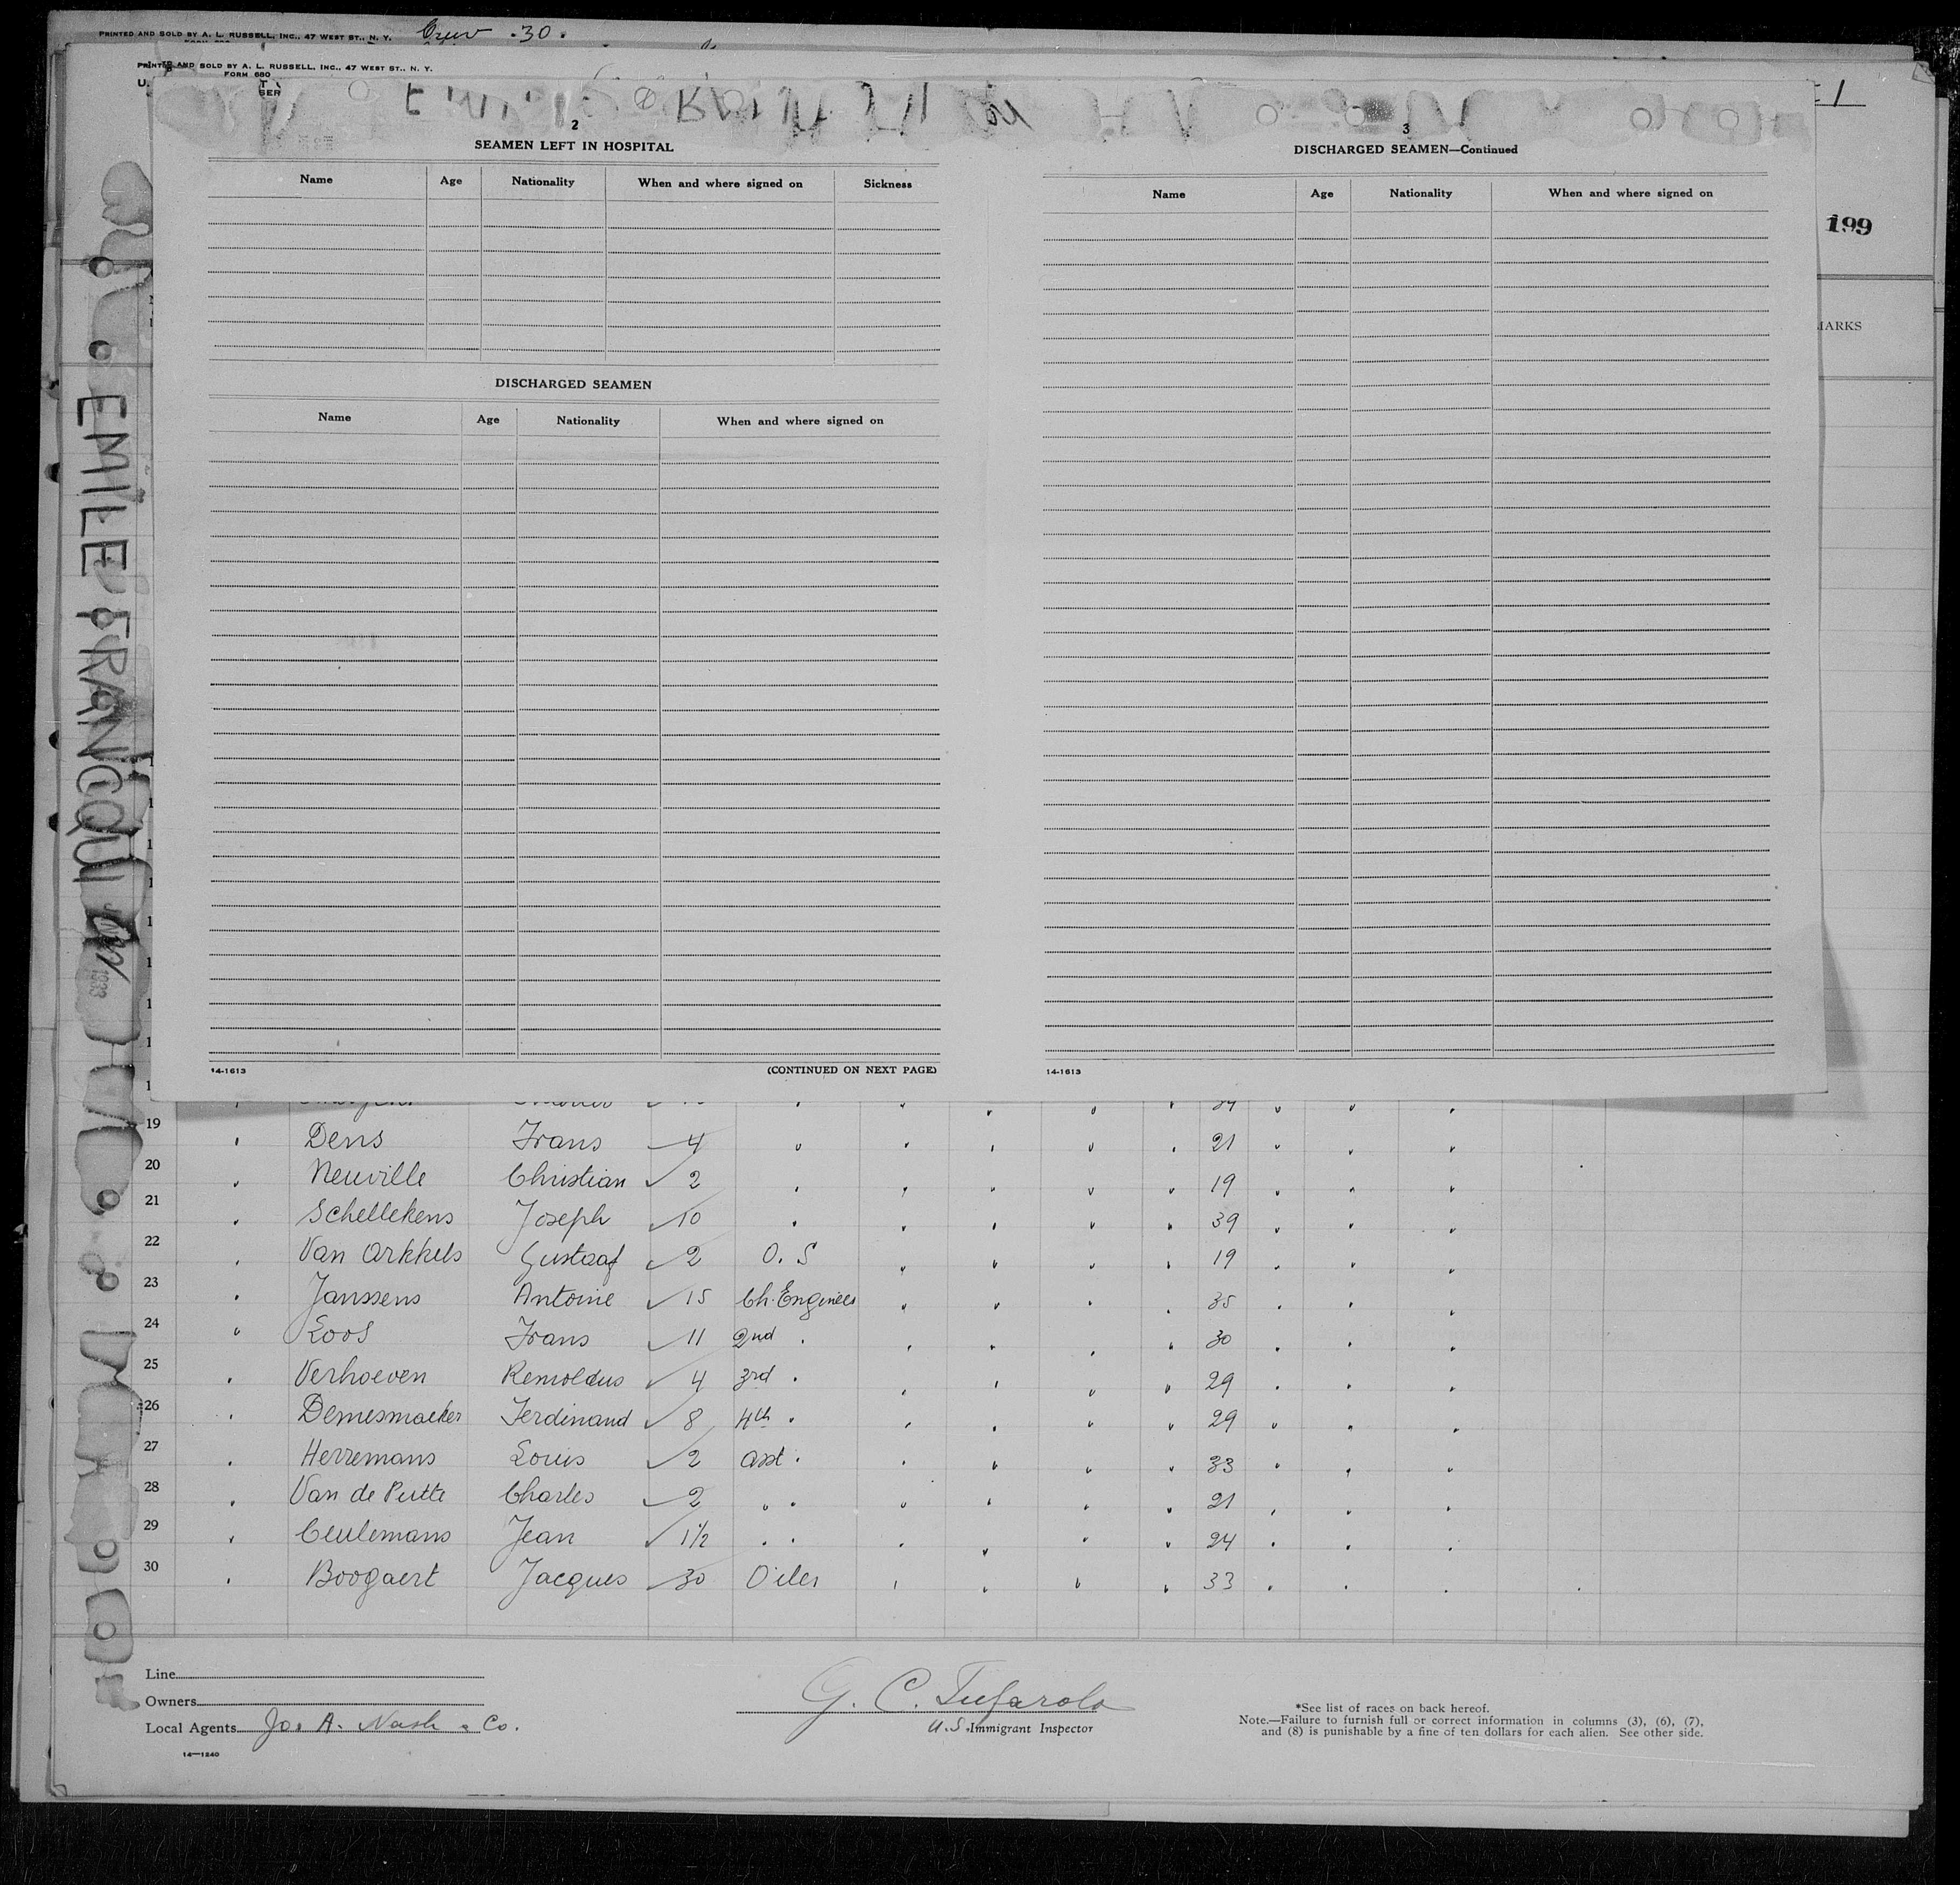 PRINTED AND SOLD BY A. L. RUSSELL, INC., 47 WEST ST., N. Y. Crew . 30 .
PRINTED AND SOLD BY A. L. RUSSELL, INC., 47 WEST ST., N. Y.
FORM 680
199
EMILE FRANCQUI
1933
2
SEAMEN LEFT IN HOSPITAL
Name Age Nationality When and where signed on Sickness
DISCHARGED SEAMEN
Name Age Nationality When and where signed on
14-1613 (CONTINUED ON NEXT PAGE)
3
DISCHARGED SEAMEN—Continued
Name Age Nationality When and where signed on
14-1613
19 " Dens Frans 4 " " " " " 21 " " "
20 " Neuville Christian ✓ 2 " " " " " 19 " " "
21 " Schellekens Joseph ✓ 10 " " " " " 39 " " "
22 " Van Arkkels Gustaaf ✓ 2 O. S " " " " 19 " " "
23 " Janssens Antoine ✓ 15 Ch. Engineer " " " " 35 " " "
24 " Loos Frans ✓ 11 2nd " " " " " 30 " " "
25 " Verhoeven Remoldus ✓ 4 3rd " " " " " 29 " " "
26 " Demesmaeker Ferdinand ✓ 8 4th " " " " " 29 " " "
27 " Herremans Louis ✓ 2 asst " " " " " 33 " " "
28 " Van de Putte Charles ✓ 2 " " " " " " 21 " " "
29 " Ceulemans Jean ✓ 1½ " " " " " " 24 " " "
30 " Boogaert Jacques ✓ 30 Oiler " " " " 33 " " "
Line
Owners
Local Agents Jos A. Nash & Co.
14—1240
G. C. Tufarolo
U. S. Immigrant Inspector
*See list of races on back hereof.
Note.—Failure to furnish full or correct information in columns (3), (6), (7),
and (8) is punishable by a fine of ten dollars for each alien. See other side.